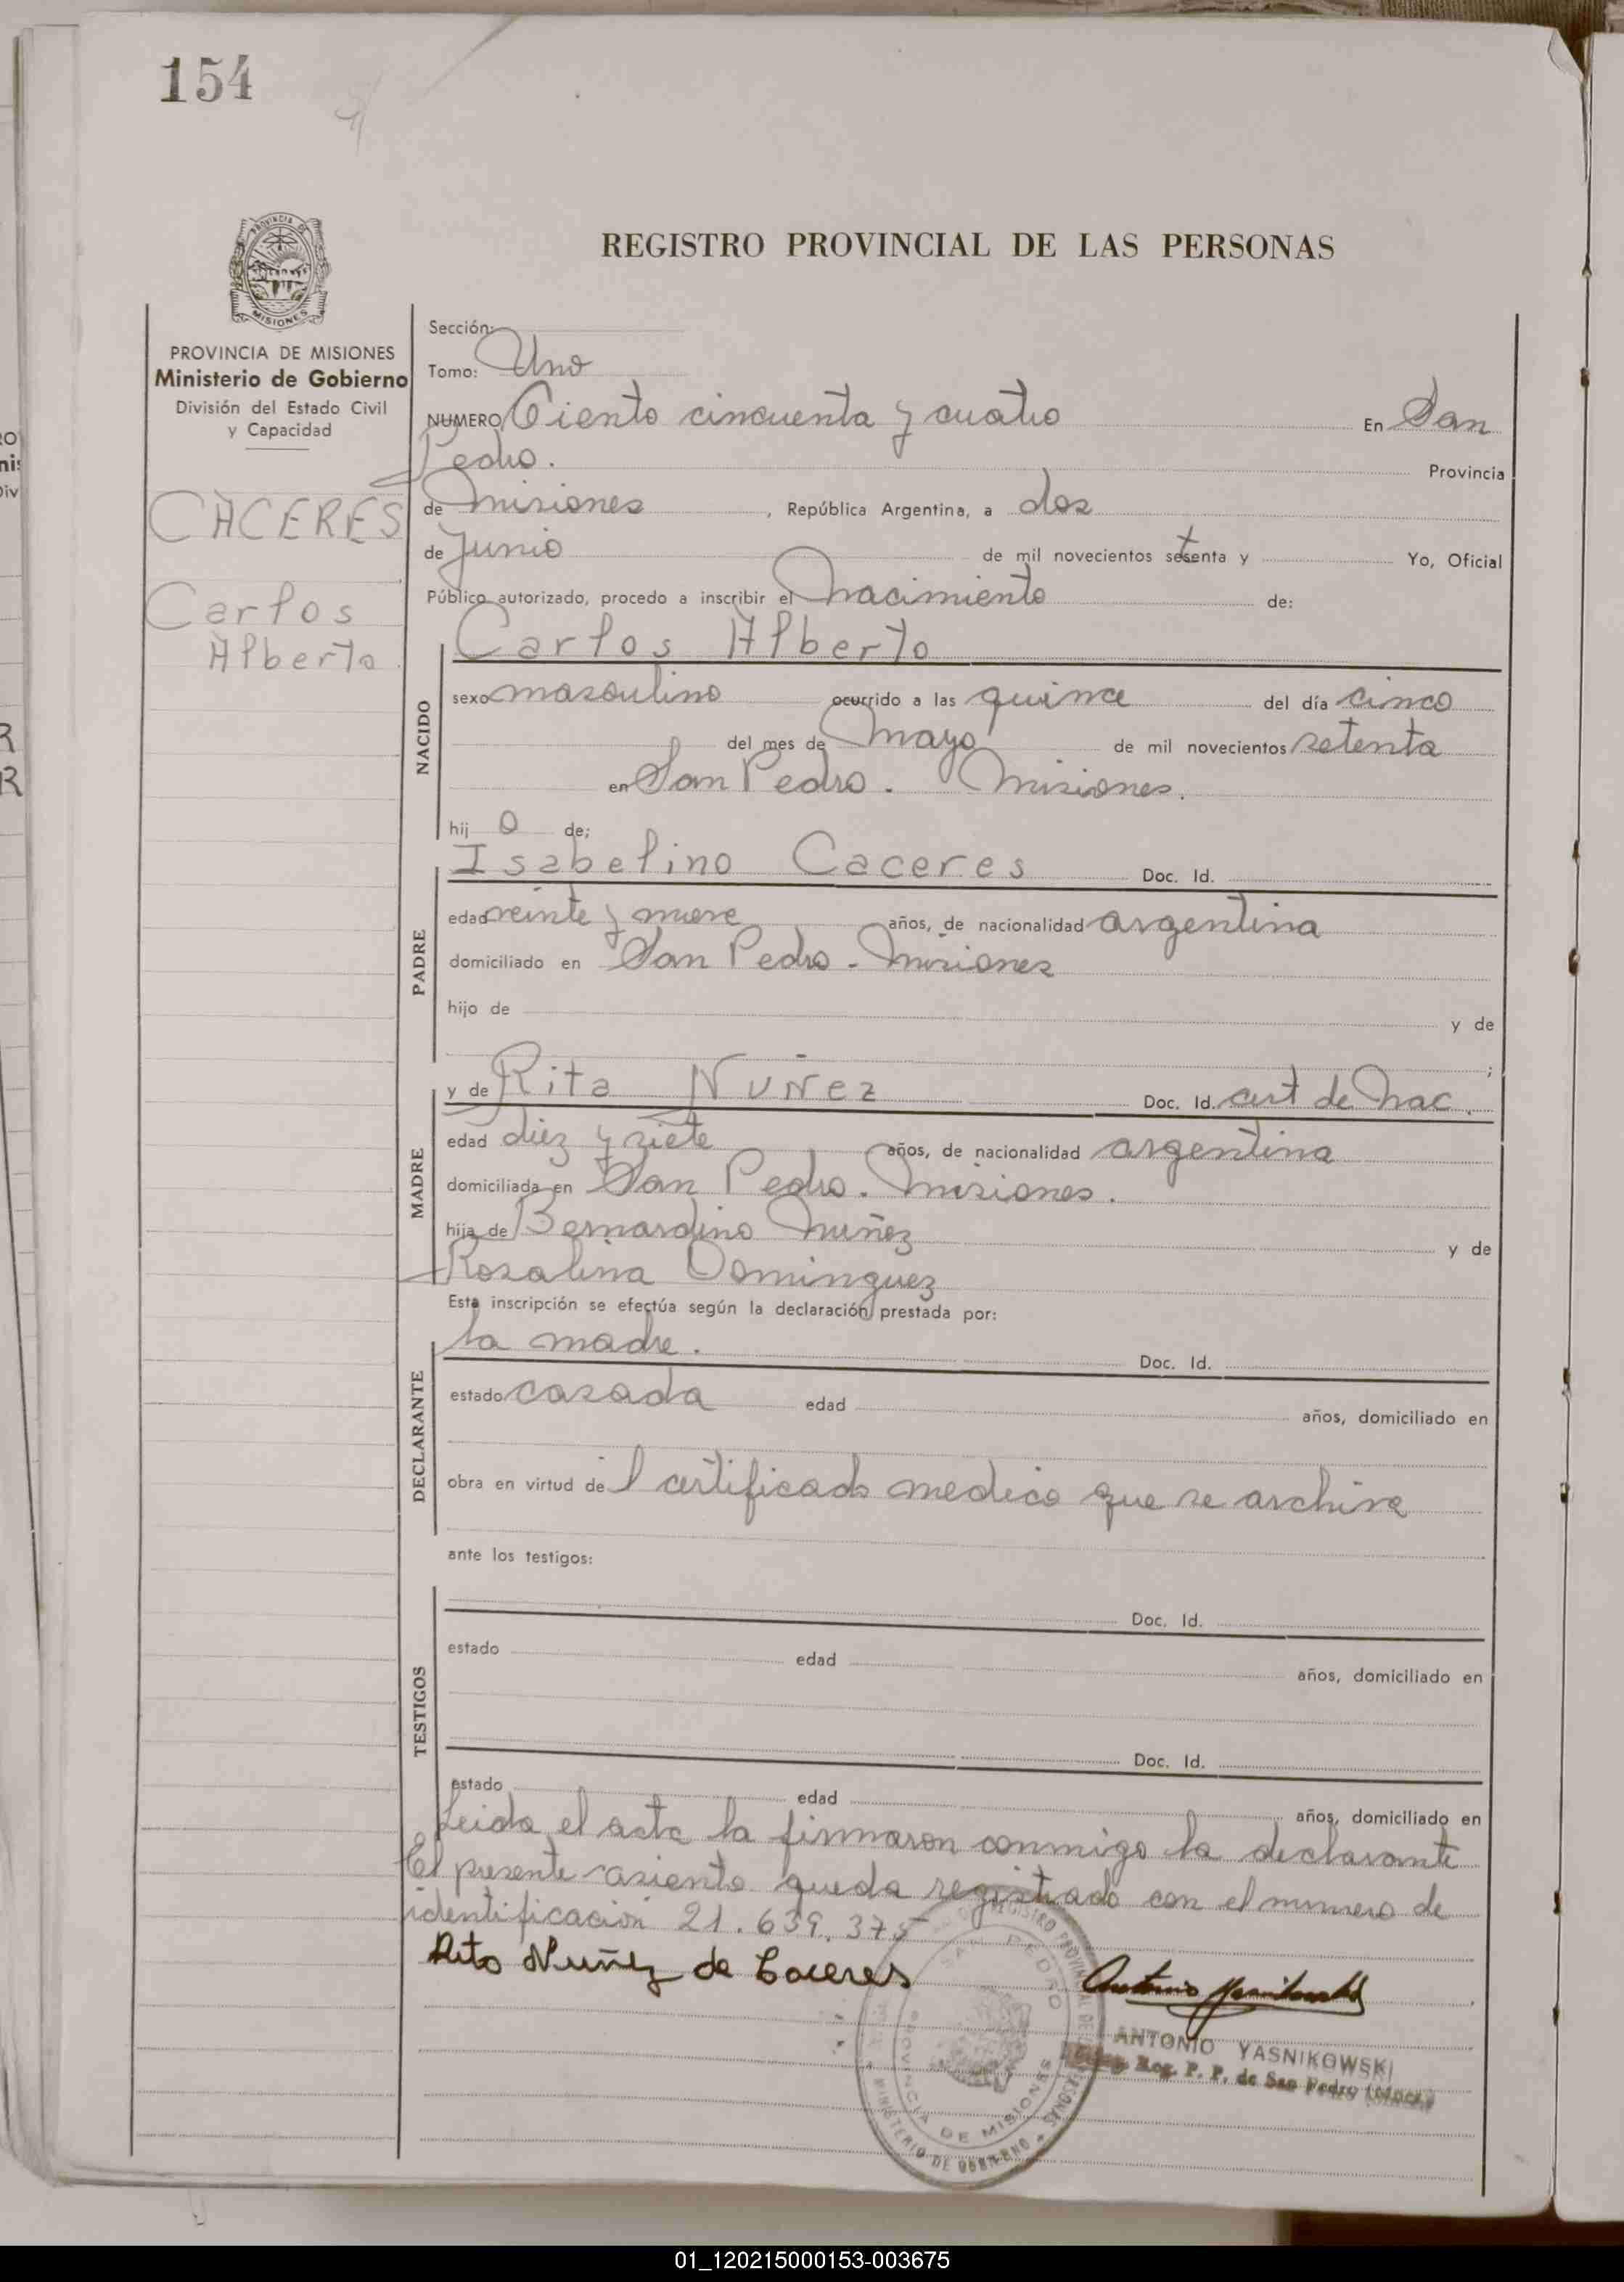 154
REGISTRO PROVINCIAL DE LAS PERSONAS
PROVINCIA DE MISIONES
PROVINCIA DE MISIONES
Ministerio de Gobierno
División del Estado Civil
y Capacidad
CACERES
Carlos
Alberto
Sección:
Tomo: Uno
NUMERO Ciento cincuenta y cuatro En San
Pedro. Provincia
de Misiones, República Argentina, a dos
de Junio de mil novecientos setenta y Yo, Oficial
Público autorizado, procedo a inscribir el nacimiento de:
Carlos Alberto
NACIDO
sexo masculino ocurrido a las quince del día cinco
del mes de Mayo de mil novecientos setenta
en San Pedro. Misiones.
hijo de;
Isabelino Caceres Doc. Id.
PADRE
edad veinte y nueve años, de nacionalidad argentina
domiciliado en San Pedro - Misiones
hijo de y de
;
y de Rita Nuñez Doc. Id. cert de Nac.
MADRE
edad diez y siete años, de nacionalidad argentina
domiciliada en San Pedro. Misiones.
hija de Bernardino Nuñez y de
Rosalina Dominguez
Esta inscripción se efectúa según la declaración prestada por:
la madre. Doc. Id.
DECLARANTE
estado casada edad años, domiciliado en
obra en virtud del certificado medico que se archiva
ante los testigos:
Doc. Id.
TESTIGOS
estado edad años, domiciliado en
Doc. Id.
estado edad años, domiciliado en
Leida el acta la firmaron conmigo la declarante
El presente asiento queda registrado con el numero de
identificación 21.639.375
Rita Nuñez de Caceres
Antonio Yasnikowski
ANTONIO YASNIKOWSKI
Reg. P. P. de San Pedro
REGISTRO PROVINCIAL DE LAS PERSONAS
SAN PEDRO
PROVINCIA DE MISIONES
MINISTERIO DE GOBIERNO
01_120215000153-003675